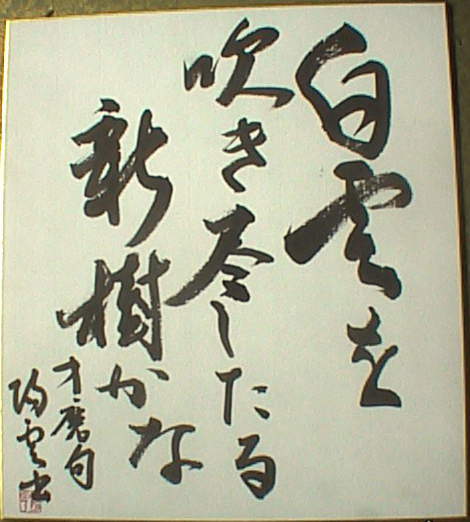 白雲を
吹き尽したる
新樹かな
才麿句
陽雲書